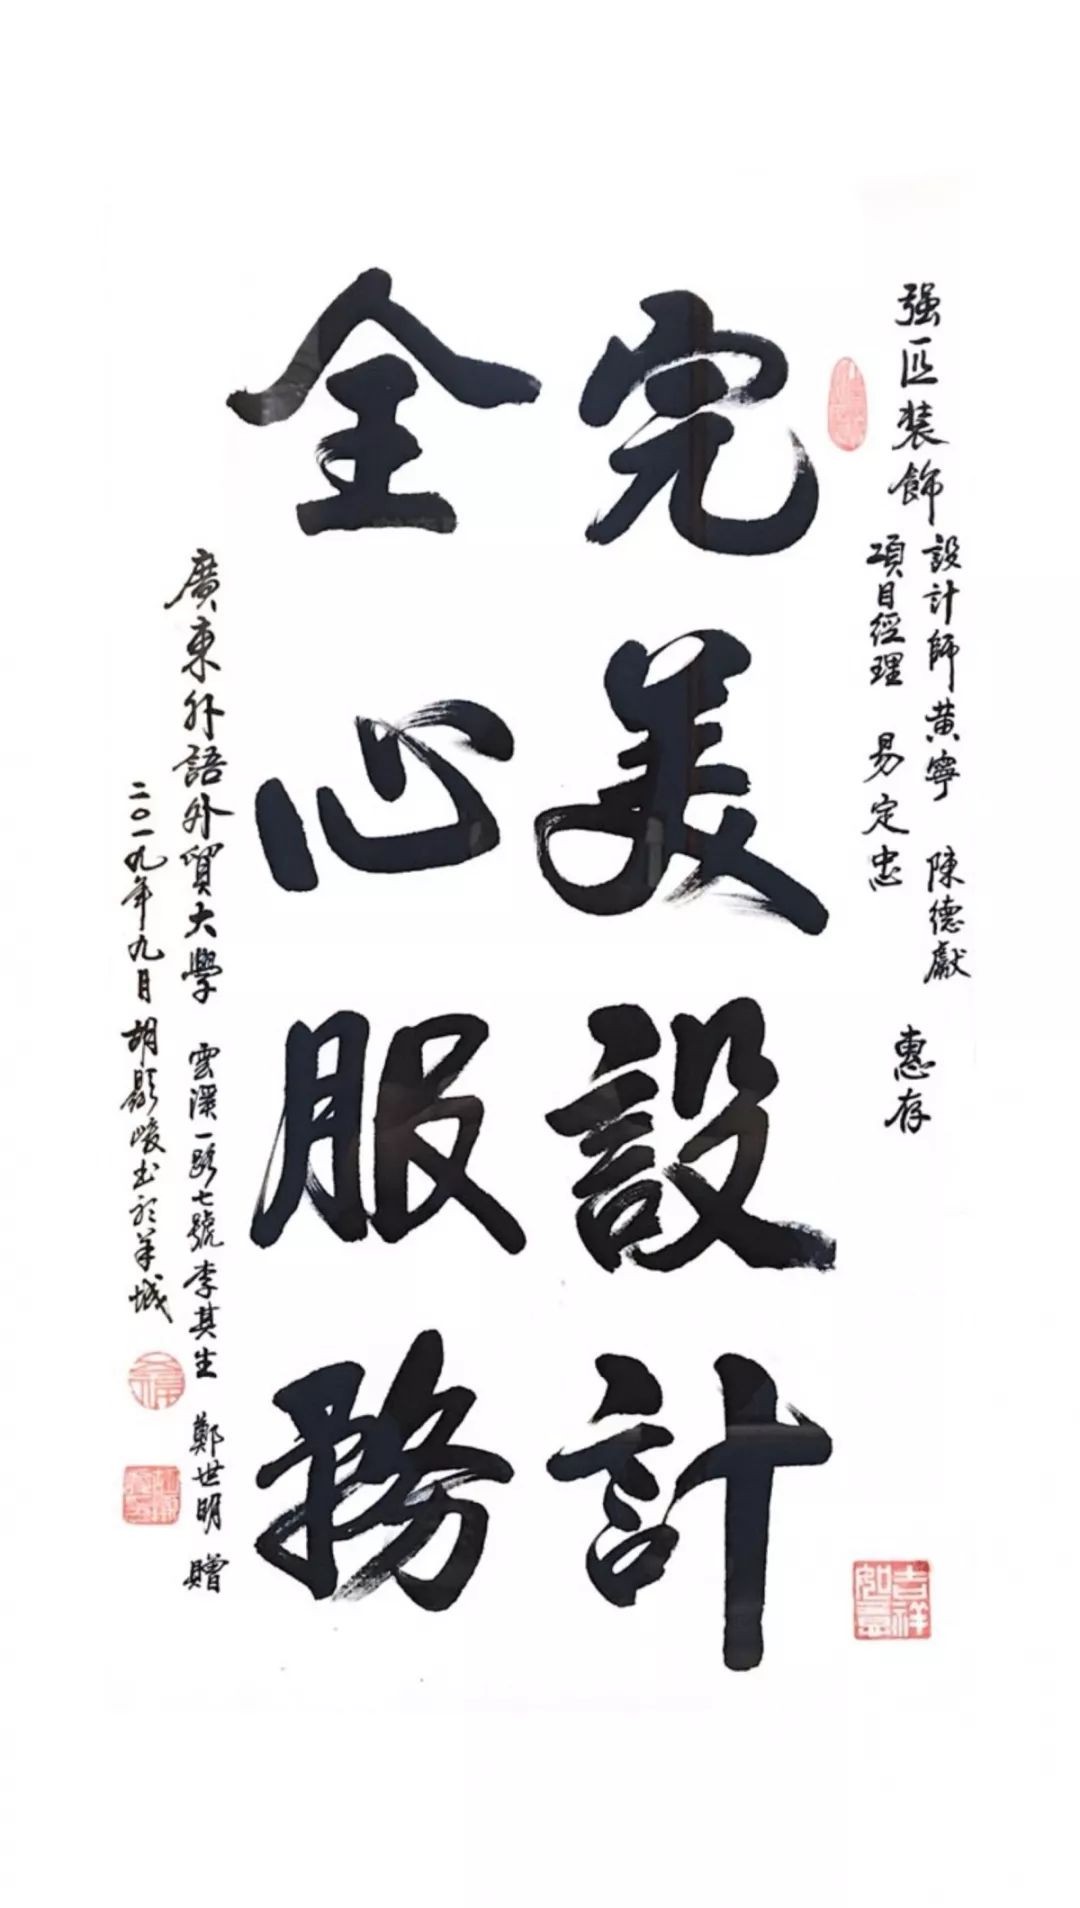 强匠装飾
設計師黄寧 陳德獻
項目經理 易定忠
惠存
完美設計
全心服務
廣東外語外貿大學 雲溪一路七號李其生 鄭世明 贈
二〇一九年九月胡顯峻书於羊城
吉祥如意